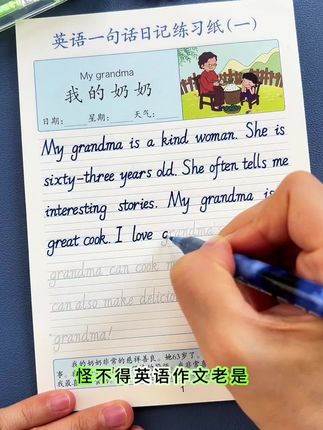 英语一句话日记练习纸(一)
My grandma
我的奶奶
日期: 星期: 天气:
My grandma is a kind woman. She is
sixty-three years old. She often tells me
interesting stories. My grandma is
great cook. I love
grandma can cook
can also make delicio
grandma!
我的奶奶非常的慈祥善良。她63岁了。
怪不得英语作文老是
1